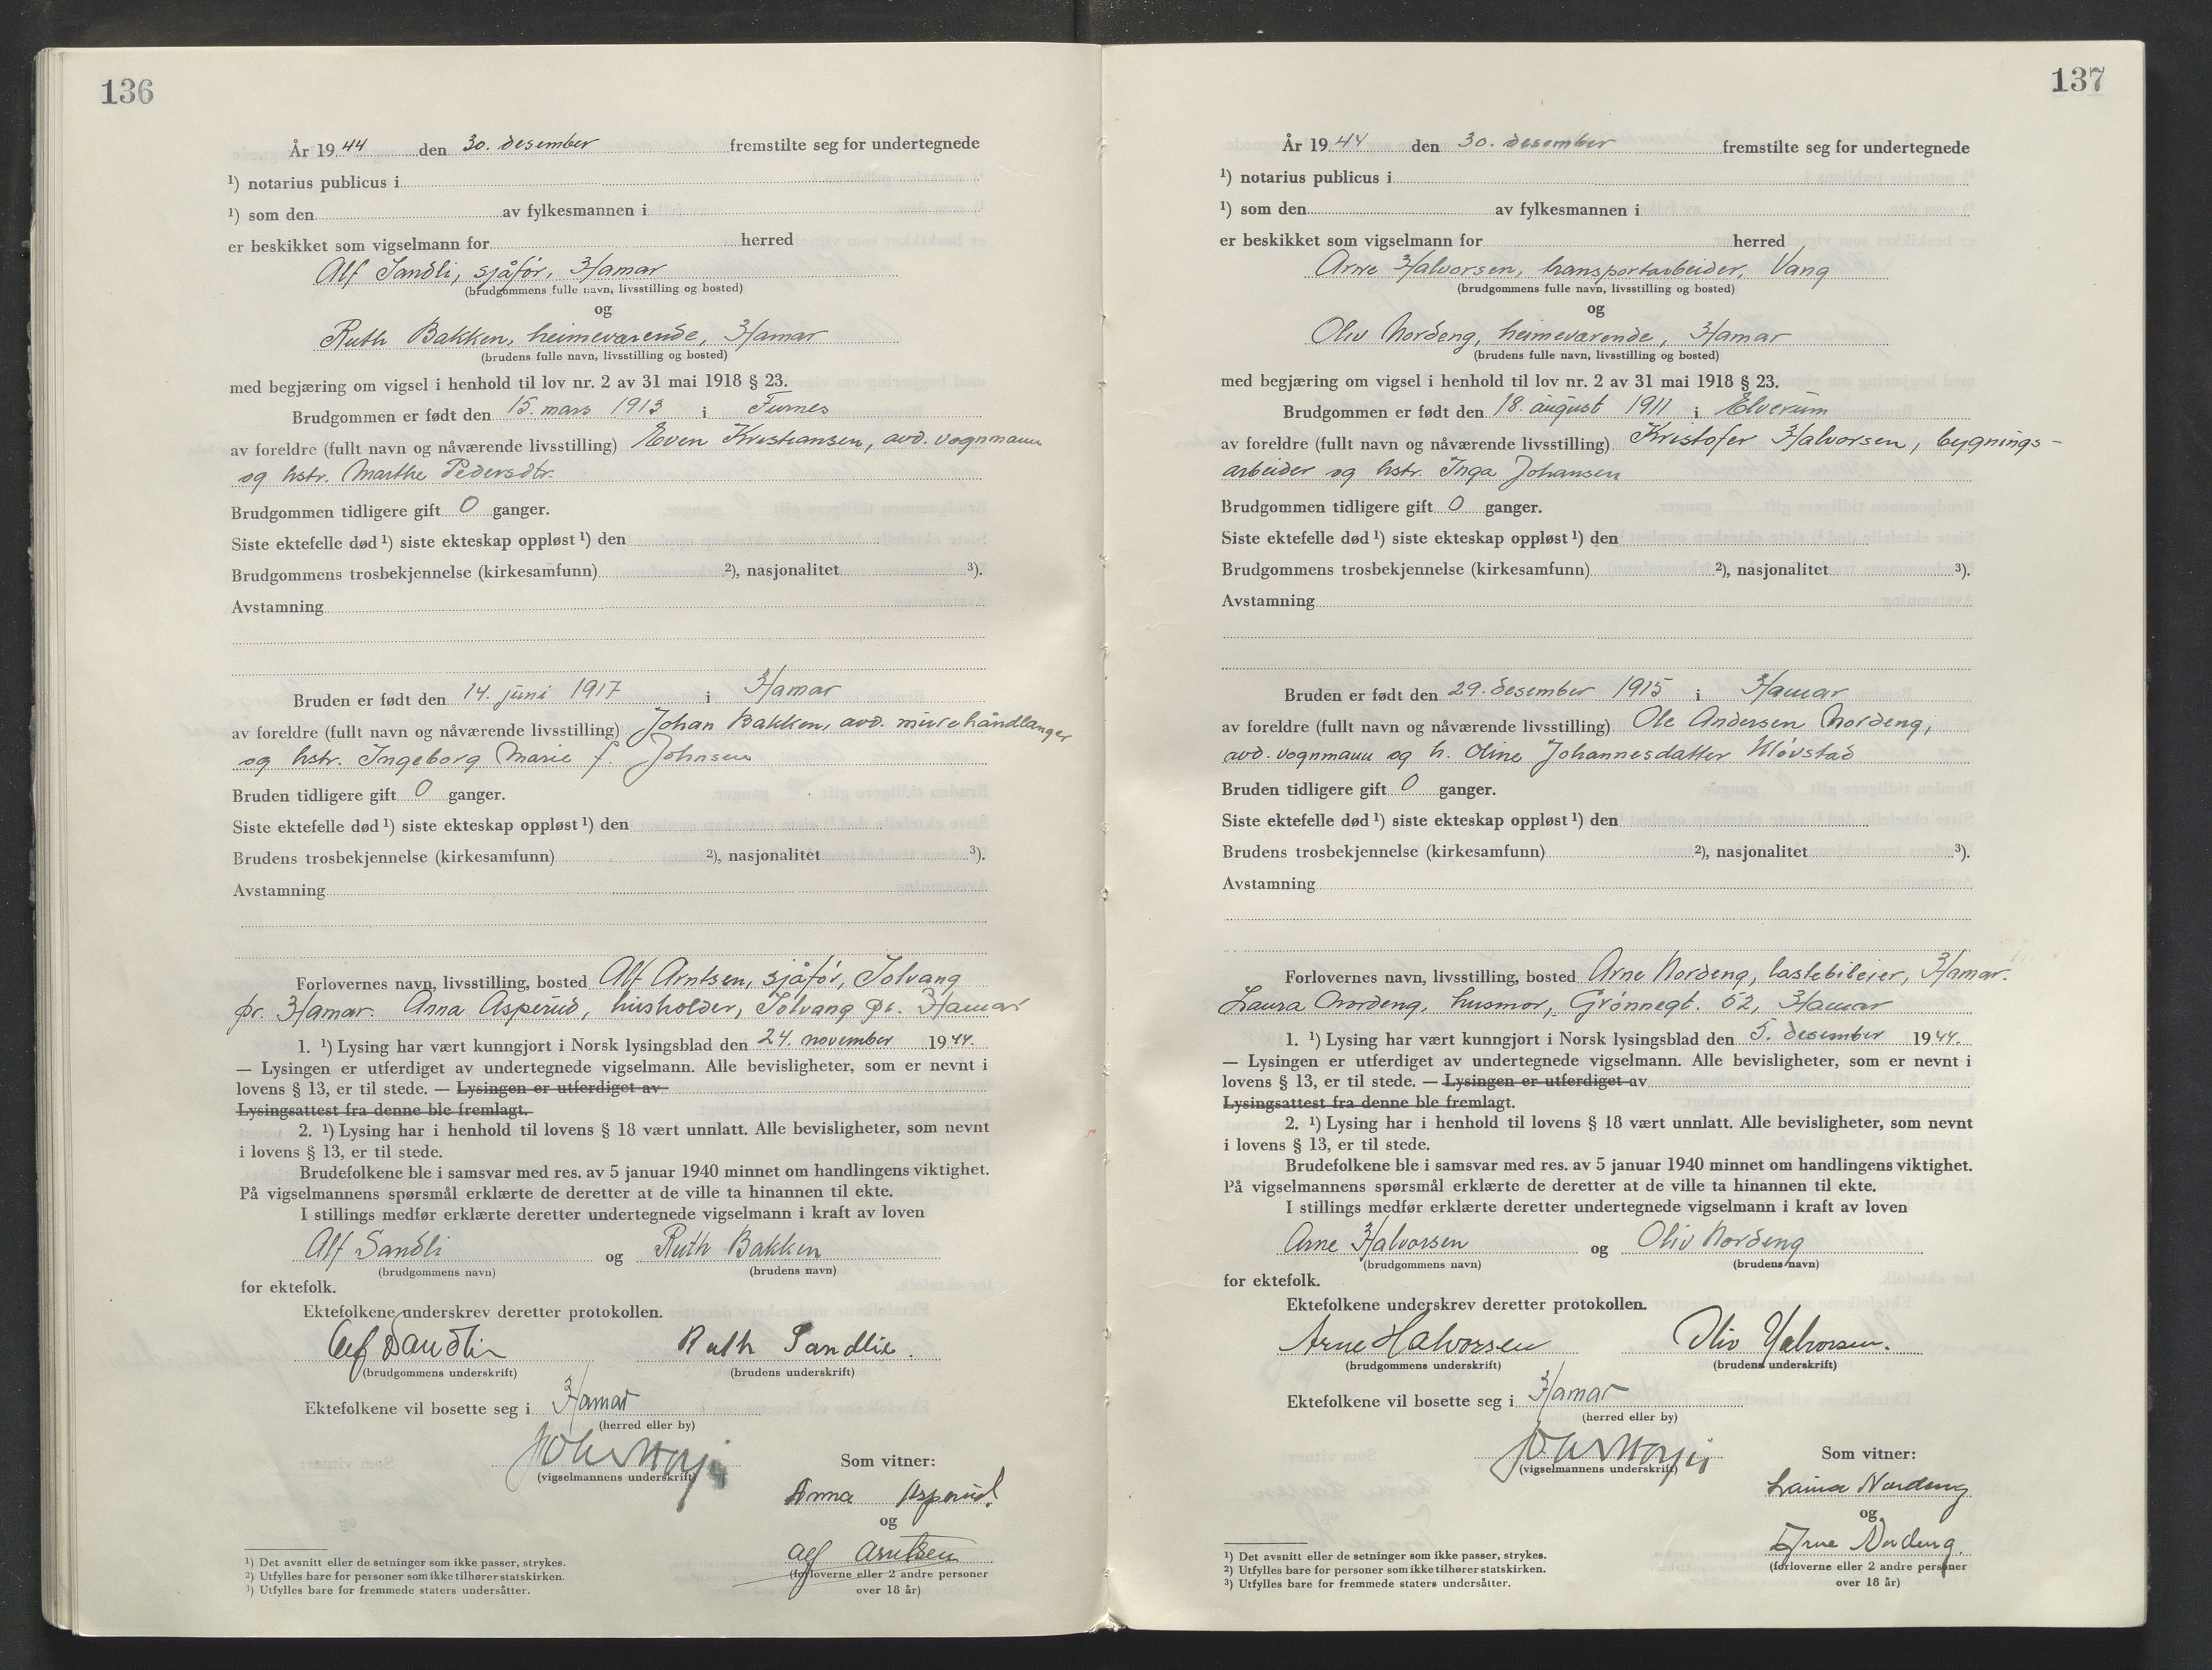 136
År 1944 den 30. desember fremstilte seg for undertegnede
¹) notarius publicus i
¹) som den av fylkesmannen i
er beskikket som vigselmann for herred
Alf Sandli, sjåfør, Hamar
(brudgommens fulle navn, livsstilling og bosted)
og
Ruth Bakken, heimeværende, Hamar
(brudens fulle navn, livsstilling og bosted)
med begjæring om vigsel i henhold til lov nr. 2 av 31 mai 1918 § 23.
Brudgommen er født den 15. mars 1913 i Furnes
av foreldre (fullt navn og nåværende livsstilling) Even Kristiansen, avd. vognmann
og hstr. Marthe Pedersdtr.
Brudgommen tidligere gift 0 ganger.
Siste ektefelle død ¹) siste ekteskap oppløst ¹) den
Brudgommens trosbekjennelse (kirkesamfunn) ²), nasjonalitet ³).
Avstamning
Bruden er født den 14. juni 1917 i Hamar
av foreldre (fullt navn og nåværende livsstilling) Johan Bakken, avd. murehåndlanger
og hstr. Ingeborg Marie f. Johnsen
Bruden tidligere gift 0 ganger.
Siste ektefelle død ¹) siste ekteskap oppløst ¹) den
Brudens trosbekjennelse (kirkesamfunn) ²), nasjonalitet ³).
Avstamning
Forlovernes navn, livsstilling, bosted Alf Arntsen, sjåfør, Solvang
pr. Hamar. Anna Asperud, husholder, Solvang pr. Hamar
1. ¹) Lysing har vært kunngjort i Norsk lysingsblad den 24. november 1944.
— Lysingen er utferdiget av undertegnede vigselmann. Alle bevisligheter, som er nevnt i
lovens § 13, er til stede. — Lysingen er utferdiget av
Lysingsattest fra denne ble fremlagt.
2. ¹) Lysing har i henhold til lovens § 18 vært unnlatt. Alle bevisligheter, som nevnt
i lovens § 13, er til stede.
Brudefolkene ble i samsvar med res. av 5 januar 1940 minnet om handlingens viktighet.
På vigselmannens spørsmål erklærte de deretter at de ville ta hinannen til ekte.
I stillings medfør erklærte deretter undertegnede vigselmann i kraft av loven
Alf Sandli og Ruth Bakken
(brudgommens navn) (brudens navn)
for ektefolk.
Ektefolkene underskrev deretter protokollen.
Alf Sandli Ruth Sandlie.
(brudgommens underskrift) (brudens underskrift)
Ektefolkene vil bosette seg i Hamar
(herred eller by)
(vigselmannens underskrift)
Som vitner:
Anna Asperud.
og
Alf Arntsen
(forloverne eller 2 andre personer
over 18 år)
¹) Det avsnitt eller de setninger som ikke passer, strykes.
²) Utfylles bare for personer som ikke tilhører statskirken.
³) Utfylles bare for fremmede staters undersåtter.
137
År 1944 den 30. desember fremstilte seg for undertegnede
¹) notarius publicus i
¹) som den av fylkesmannen i
er beskikket som vigselmann for herred
Arne Halvorsen, transportarbeider, Vang
(brudgommens fulle navn, livsstilling og bosted)
og
Oliv Nordeng, heimeværende, Hamar
(brudens fulle navn, livsstilling og bosted)
med begjæring om vigsel i henhold til lov nr. 2 av 31 mai 1918 § 23.
Brudgommen er født den 18. august 1911 i Elverum
av foreldre (fullt navn og nåværende livsstilling) Kristofer Halvorsen, bygnings-
arbeider og hstr. Inga Johansen
Brudgommen tidligere gift 0 ganger.
Siste ektefelle død ¹) siste ekteskap oppløst ¹) den
Brudgommens trosbekjennelse (kirkesamfunn) ²), nasjonalitet ³).
Avstamning
Bruden er født den 29. desember 1915 i Hamar
av foreldre (fullt navn og nåværende livsstilling) Ole Andersen Nordeng,
avd. vognmann og h. Oline Johannesdatter Kløvstad
Bruden tidligere gift 0 ganger.
Siste ektefelle død ¹) siste ekteskap oppløst ¹) den
Brudens trosbekjennelse (kirkesamfunn) ²), nasjonalitet ³).
Avstamning
Forlovernes navn, livsstilling, bosted Arne Nordeng, lastebileier, Hamar.
Laura Nordeng, husmor, Grønnegt. 52, Hamar
1. ¹) Lysing har vært kunngjort i Norsk lysingsblad den 5. desember 1944.
— Lysingen er utferdiget av undertegnede vigselmann. Alle bevisligheter, som er nevnt i
lovens § 13, er til stede. — Lysingen er utferdiget av
Lysingsattest fra denne ble fremlagt.
2. ¹) Lysing har i henhold til lovens § 18 vært unnlatt. Alle bevisligheter, som nevnt
i lovens § 13, er til stede.
Brudefolkene ble i samsvar med res. av 5 januar 1940 minnet om handlingens viktighet.
På vigselmannens spørsmål erklærte de deretter at de ville ta hinannen til ekte.
I stillings medfør erklærte deretter undertegnede vigselmann i kraft av loven
Arne Halvorsen og Oliv Nordeng
(brudgommens navn) (brudens navn)
for ektefolk.
Ektefolkene underskrev deretter protokollen.
Arne Halvorsen Oliv Halvorsen.
(brudgommens underskrift) (brudens underskrift)
Ektefolkene vil bosette seg i Hamar
(herred eller by)
(vigselmannens underskrift)
Som vitner:
Laura Nordeng
og
Arne Nordeng.
(forloverne eller 2 andre personer
over 18 år)
¹) Det avsnitt eller de setninger som ikke passer, strykes.
²) Utfylles bare for personer som ikke tilhører statskirken.
³) Utfylles bare for fremmede staters undersåtter.